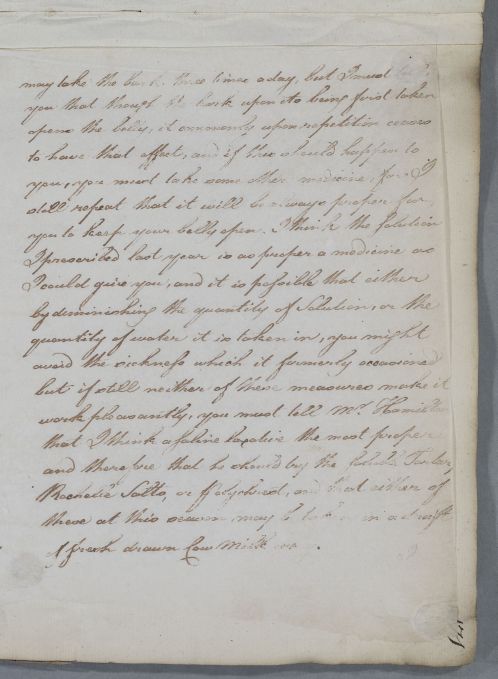 may take the bark three times a day, but I must
you that though the bark upon its being first taken
opens the belly, it commonly upon repetition ceases
to have that effect, and if this should happen to
you, you must take some other medicine, for I
still repeat that it will be always proper for
you to keep your belly open. I think the Solution
I prescribed last year is as proper a medicine as
I could give you, and it is possible that either
by diminishing the quantity of Solution, or the
quantity of water it is taken in, you might
avoid the sickness which it formerly occasioned
but if still neither of these measures make it
work pleasantly, you must tell Mr. Hamilton
that I think a saline laxative the most proper
and therefore that he should try the Soluble Tartar
Rochelle Salts, or Polychrest, and that either of
these at this season may be taken in a draught
of fresh drawn Cow Milk